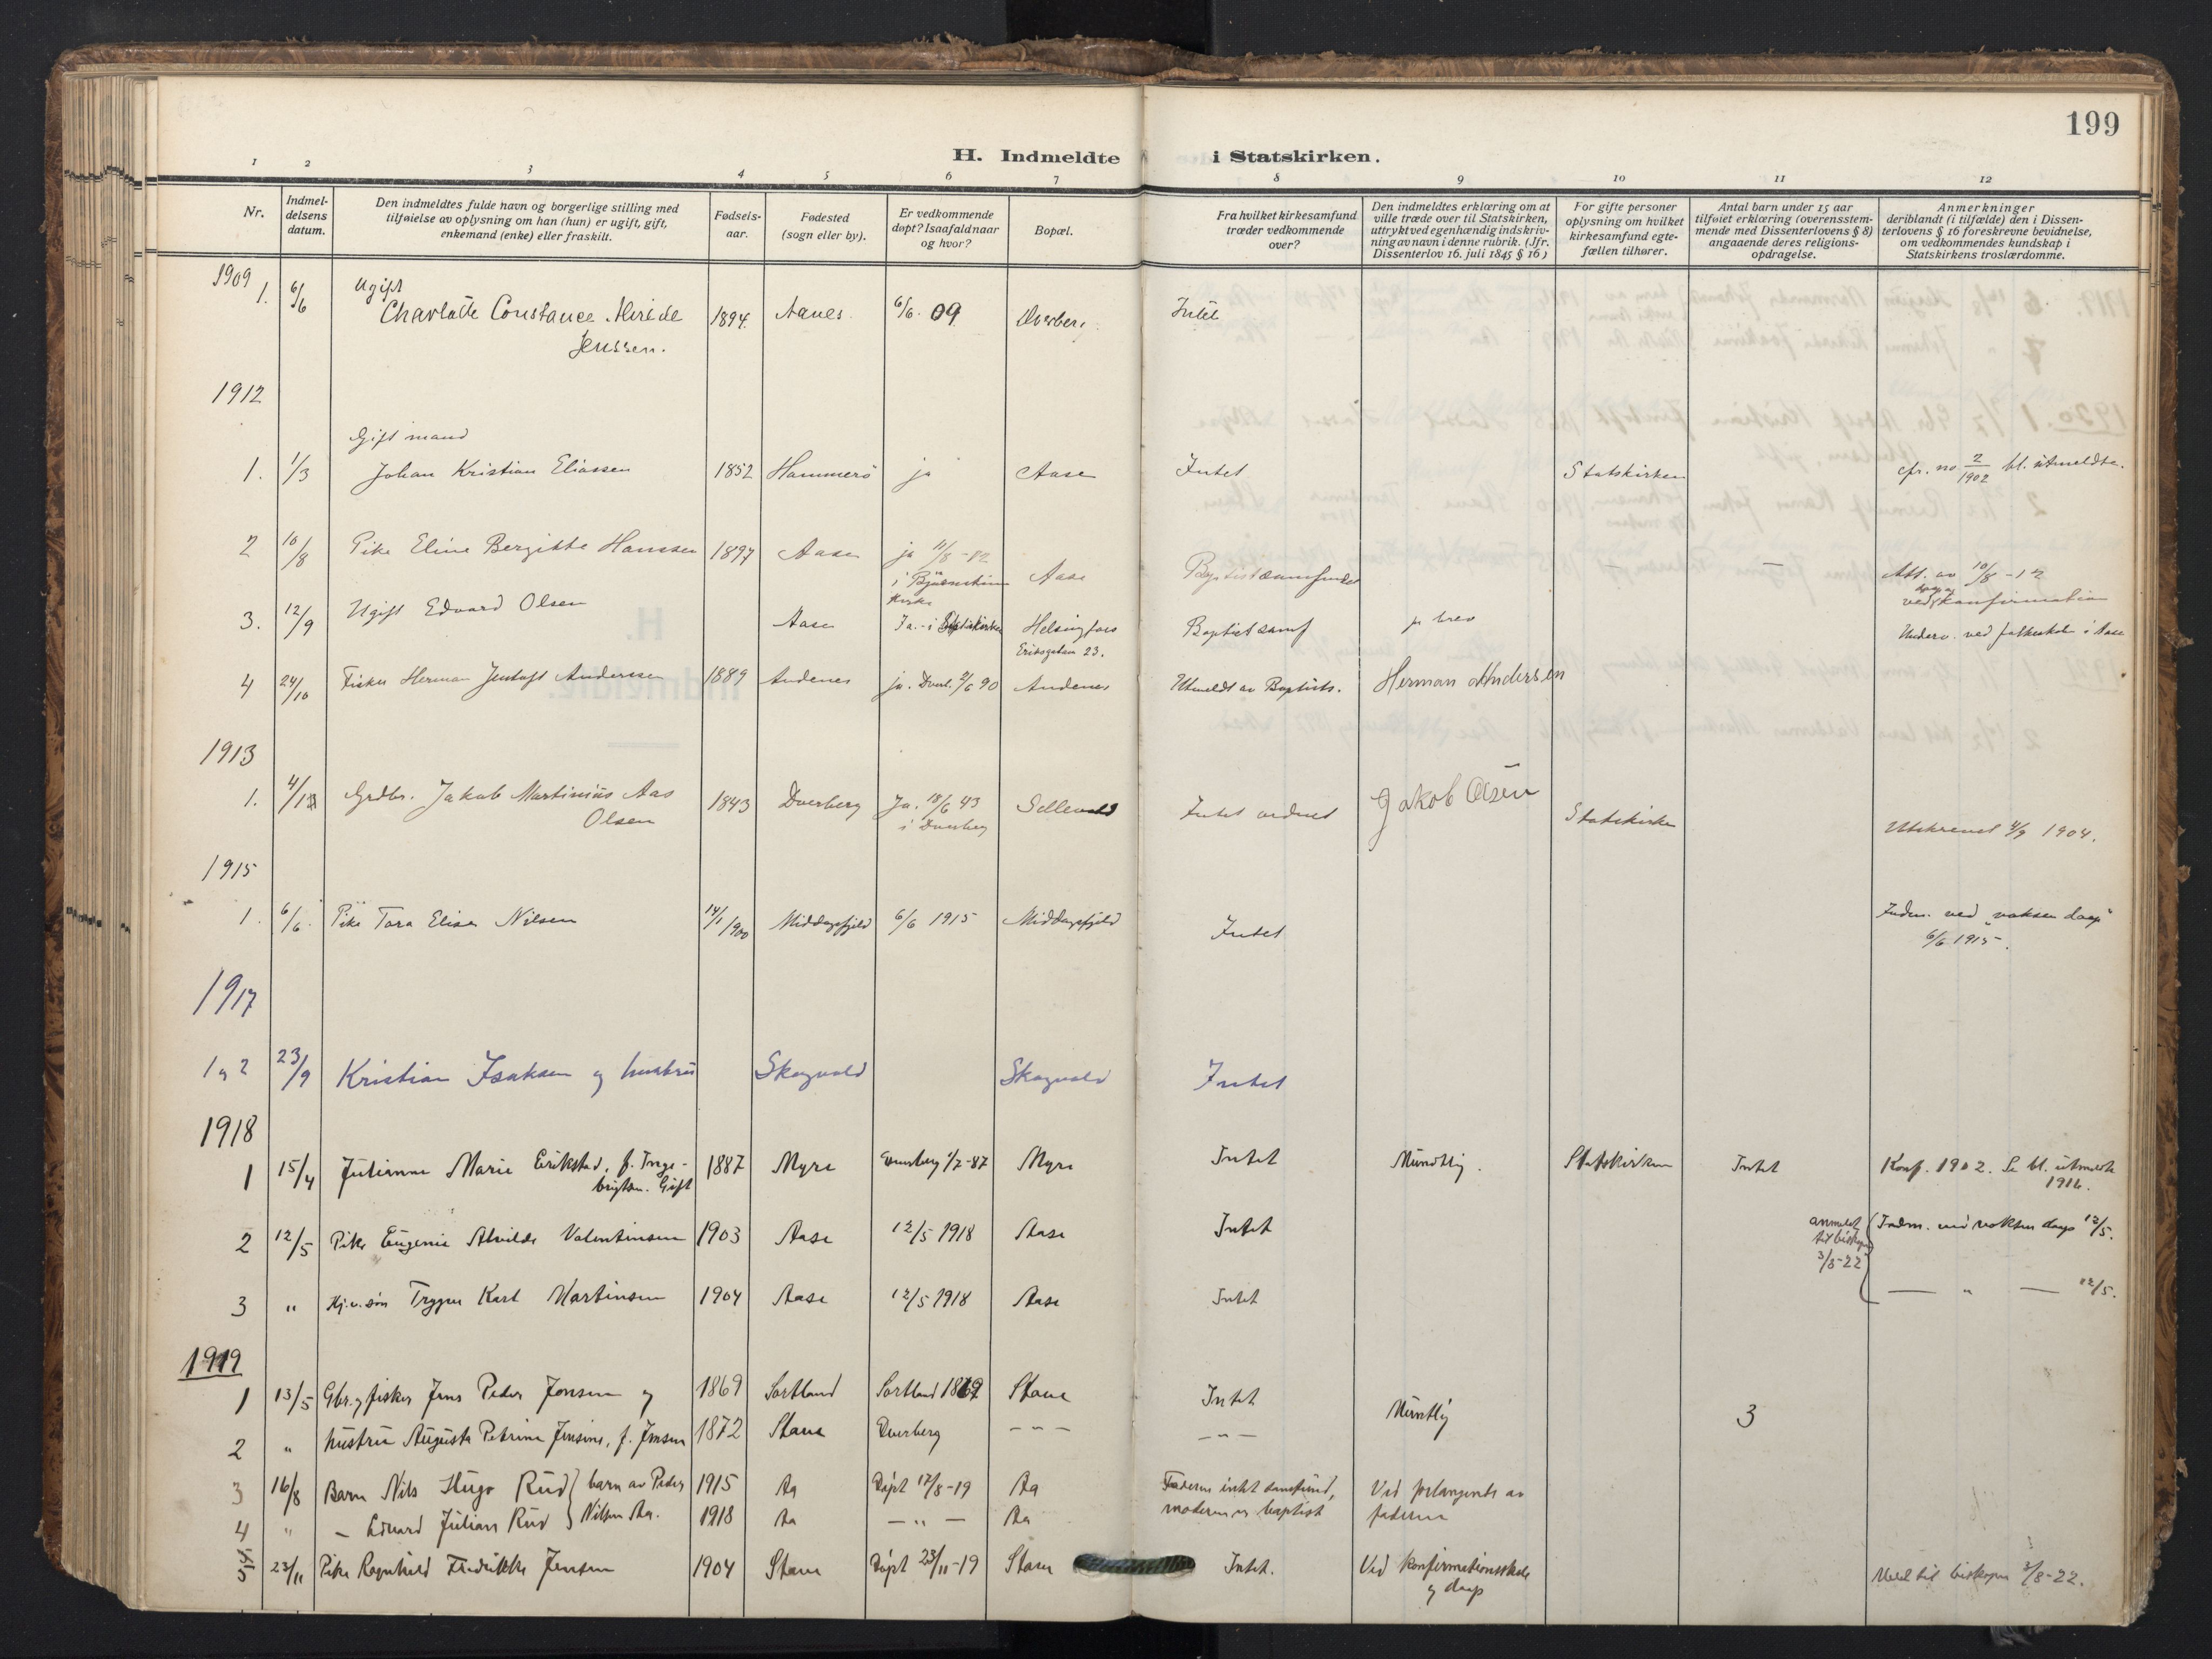 199
H. Indmeldte i Statskirken.
1 2 3 4 5 6 7 8 9 10 11 12
Nr.
Indmel-
delsens
datum.
Den indmeldtes fulde navn og borgerlige stilling med
tilføielse av oplysning om han (hun) er ugift, gift,
enkemand (enke) eller fraskilt.
Fødsels-
aar.
Fødested
(sogn eller by).
Er vedkommende
døpt? Isaafald naar
og hvor?
Bopæl.
Fra hvilket kirkesamfund
træder vedkommende
over?
Den indmeldtes erklæring om at
ville træde over til Statskirken,
uttrykt ved egenhændig indskriv-
ning av navn i denne rubrik. (Jfr.
Dissenterlov 16. juli 1845 § 16)
For gifte personer
oplysning om hvilket
kirkesamfund egte-
fællen tilhører.
Antal barn under 15 aar
tilføiet erklæring (overensstem-
mende med Dissenterlovens § 8)
angaaende deres religions-
opdragelse.
Anmerkninger
deriblandt (i tilfælde) den i Dissen-
terlovens § 16 foreskrevne bevidnelse,
om vedkommendes kundskap i
Statskirkens troslærdomme.
1909
Ugift
1. 6/6 Charlotte Constance Jenssen. 1894. Aanes 6/6 09 Dverberg Intet
1912
Gift mand
1. 1/3 Johan Kristian Eliassen 1852 Hammerö ja Aase Intet Statskirken cfr. no 2/1902 bl. utmeldte.
2 10/8 Pike Eline Bergitte Hanssen 1897 Aase ja 11/8 -82 Aase Baptistsamfundet — — Att. av 10/8 -12
i kirke
ved konfirmation
3. 12/9 Ugift Edvard Olsen Aase Ja. - i Helsingfors Baptistsamf pr brev Underv. ved folkeskolen i Aase
Eriksgatan 23.
4 24/10 Fisker Herman Gustaft Anderssen 1889 Andenes ja. Dverb. 2/6 90 Andenes Utmeldt av Baptists. Herman Andersen
1913
1. 4/12 Grdbr. Jakob Martinius Aas 1843 Dverberg Ja. 18/6 43 Sellevold Intet ordnet Jakob Olsen Statskirke Utskrevet 4/9 1904.
Olsen i Dverberg
1915
1. 6/6. Pike Tora Elise Nilsen 14/1 1900 Middagsfjeld 6/6 1915 Middagsfjeld Intet Indm. ved "voksen daap"
6/6 1915.
1917
1 og 2 23/9 Kristian Isaksen og hustru Skogvold Skogvold Intet
1918
1 15/4 Julianna Marie Erikstad, f. Inge- 1887 Myre Dverberg 1/7 -87 Myre Intet Mundtlig. Statskirken Intet Konf. 1902. Se bl. utmeldte
brigtsn. Gift 1916.
2 12/5 Pike Eugenie Alvilde Valentinsen 1903 Aase 12/5 1918 Aase Intet anmeldt Indm. ved voksen daap 12/5.
til biskopen
3/8-22
3 " Hj.v. søn Trygve Karl Martinsen 1904 Aase 12/5 1918 Aase Intet — " — 12/5.
1919
1 13/5 Gbr. og fisker Jens Peder Jensen og 1869 Sortland Sortland 1869 Stave Intet Muntlig 3
2 " hustru Augusta Petrine Jensine, f. Jensen 1872 Stave Dverberg - " - - " -
3 16/8 Barn Nils Hugo Rud } barn av Peder 1915 Aa Døpt 17/8 -19 Aa Faderen intet samfund, Ved forlangende av
4 " — Edvard Julian Rud } Nilsen Aa. 1918 Aa — " — Aa moderen er baptist faderen
5 23/11 Pike Ragnhild Fredrikke Jensen 1904 Stave Døpt 23/11 -19 Stave Intet. Ved konfirmationsskole Meld til biskopen 3/8-22.
og daap